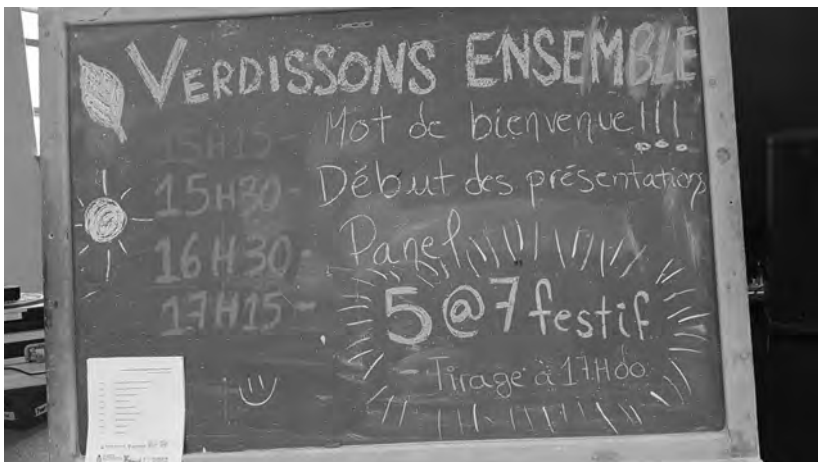 VERDISSONS ENSEMBLE
15H15- Mot de bienvenue!!!
15H30- Début des présentations
16H30- Panel
17H15- 5@7 festif
Tirage à 17H00